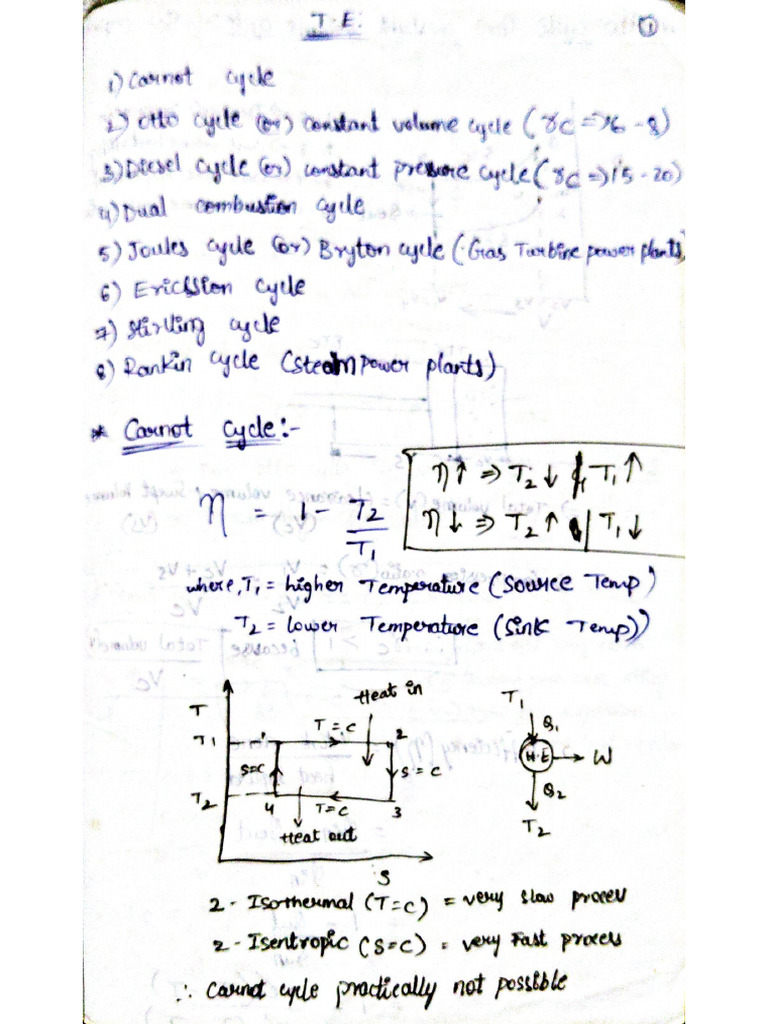 T.E:
①
1) Carnot cycle
2) Otto cycle (or) constant volume cycle (γc => 6 - 8)
3) Diesel cycle (or) constant pressure cycle (γc => 15 - 20)
4) Dual combustion cycle
5) Joules cycle (or) Bryton cycle (Gas Turbine power plants)
6) Ericssion cycle
7) Stirling cycle
8) Rankin cycle (steam power plants)
* Carnot cycle:-
η↑ => T2↓ | T1↑
η↓ => T2↑ | T1↓
η = 1 - T2/T1
where, T1 = higher Temperature (Source Temp)
T2 = lower Temperature (Sink Temp))
Heat in
T
T1
1
T = C
2
S=C
S = C
T2
4
T=C
3
Heat out
S
T1
Q1
H.E
W
Q2
T2
2 - Isothermal (T=C) = very slow proces
2 - Isentropic (S=C) = very Fast process
∴ Carnot cycle practically not possible